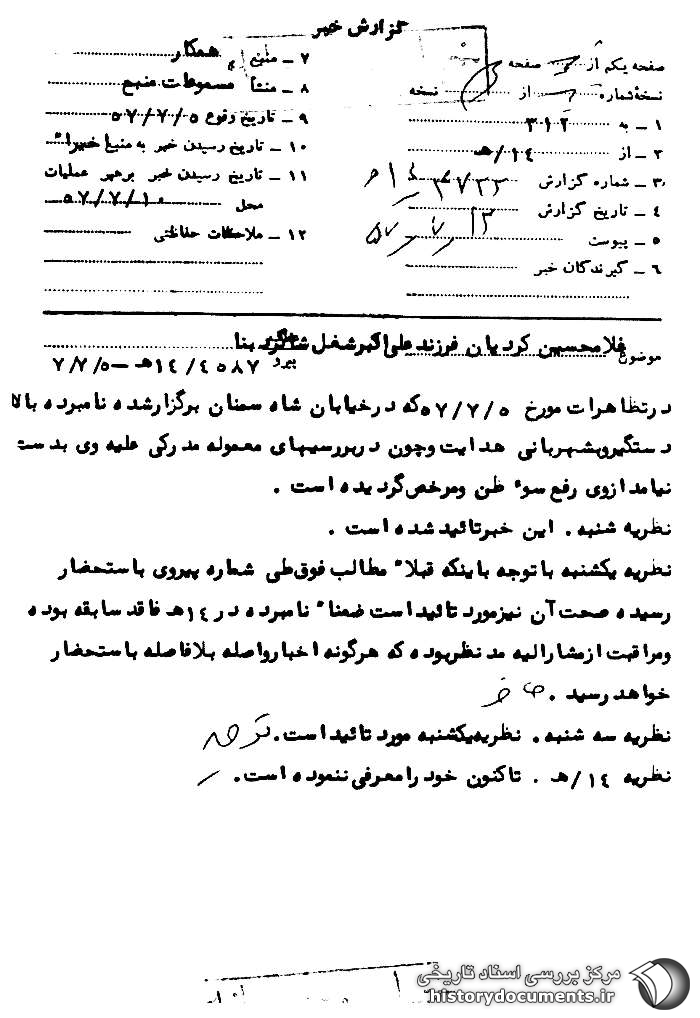 گزارش خبر
صفحه یکم از صفحه
نسخه شماره از نسخه
۱ ــ به ۳۱۲
۲ ــ از ۱۴/ه‍
۳ ــ شماره گزارش
۴ ــ تاریخ گزارش
۵ ــ پیوست
۶ ــ گیرندگان خبر
۷ ــ منبع همکار
۸ ــ منشأ مسموعات منبع
۹ ــ تاریخ وقوع ۵۷/۷/۵
۱۰ ــ تاریخ رسیدن خبر به منبع
۱۱ ــ تاریخ رسیدن خبر برهبر عملیات
محل ۵۷/۷/۱۰
۱۲ ــ ملاحظات حفاظتی
موضوع غلامحسین کردیان فرزند علی اکبر شغل شاگرد بنا
پیرو ۱۴/۴۵۸۷ه‍ ــ ۷/۷/۵
در تظاهرات مورخ ۵۷/۷/۵ که در خیابان شاه سمنان برگزار شده نامبرده بالا
دستگیر و بشهربانی هدایت و چون در بررسیهای معموله مدرکی علیه وی بدست
نیامد از وی رفع سوء ظن و مرخص گردیده است .
نظریه شنبه . این خبر تائید شده است .
نظریه یکشنبه با توجه باینکه قبلاً مطالب فوق طی شماره پیروی باستحضار
رسیده صحت آن نیز مورد تائید است ضمناً نامبرده در ۱۴ه‍ فاقد سابقه بوده
و مراقبت از مشارالیه مد نظر بوده که هرگونه اخبار واصله بلافاصله باستحضار
خواهد رسید .
نظریه سه شنبه . نظریه یکشنبه مورد تائید است .
نظریه ۱۴/ه‍ . تاکنون خود را معرفی ننموده است .
مرکز بررسی اسناد تاریخی
historydocuments.ir